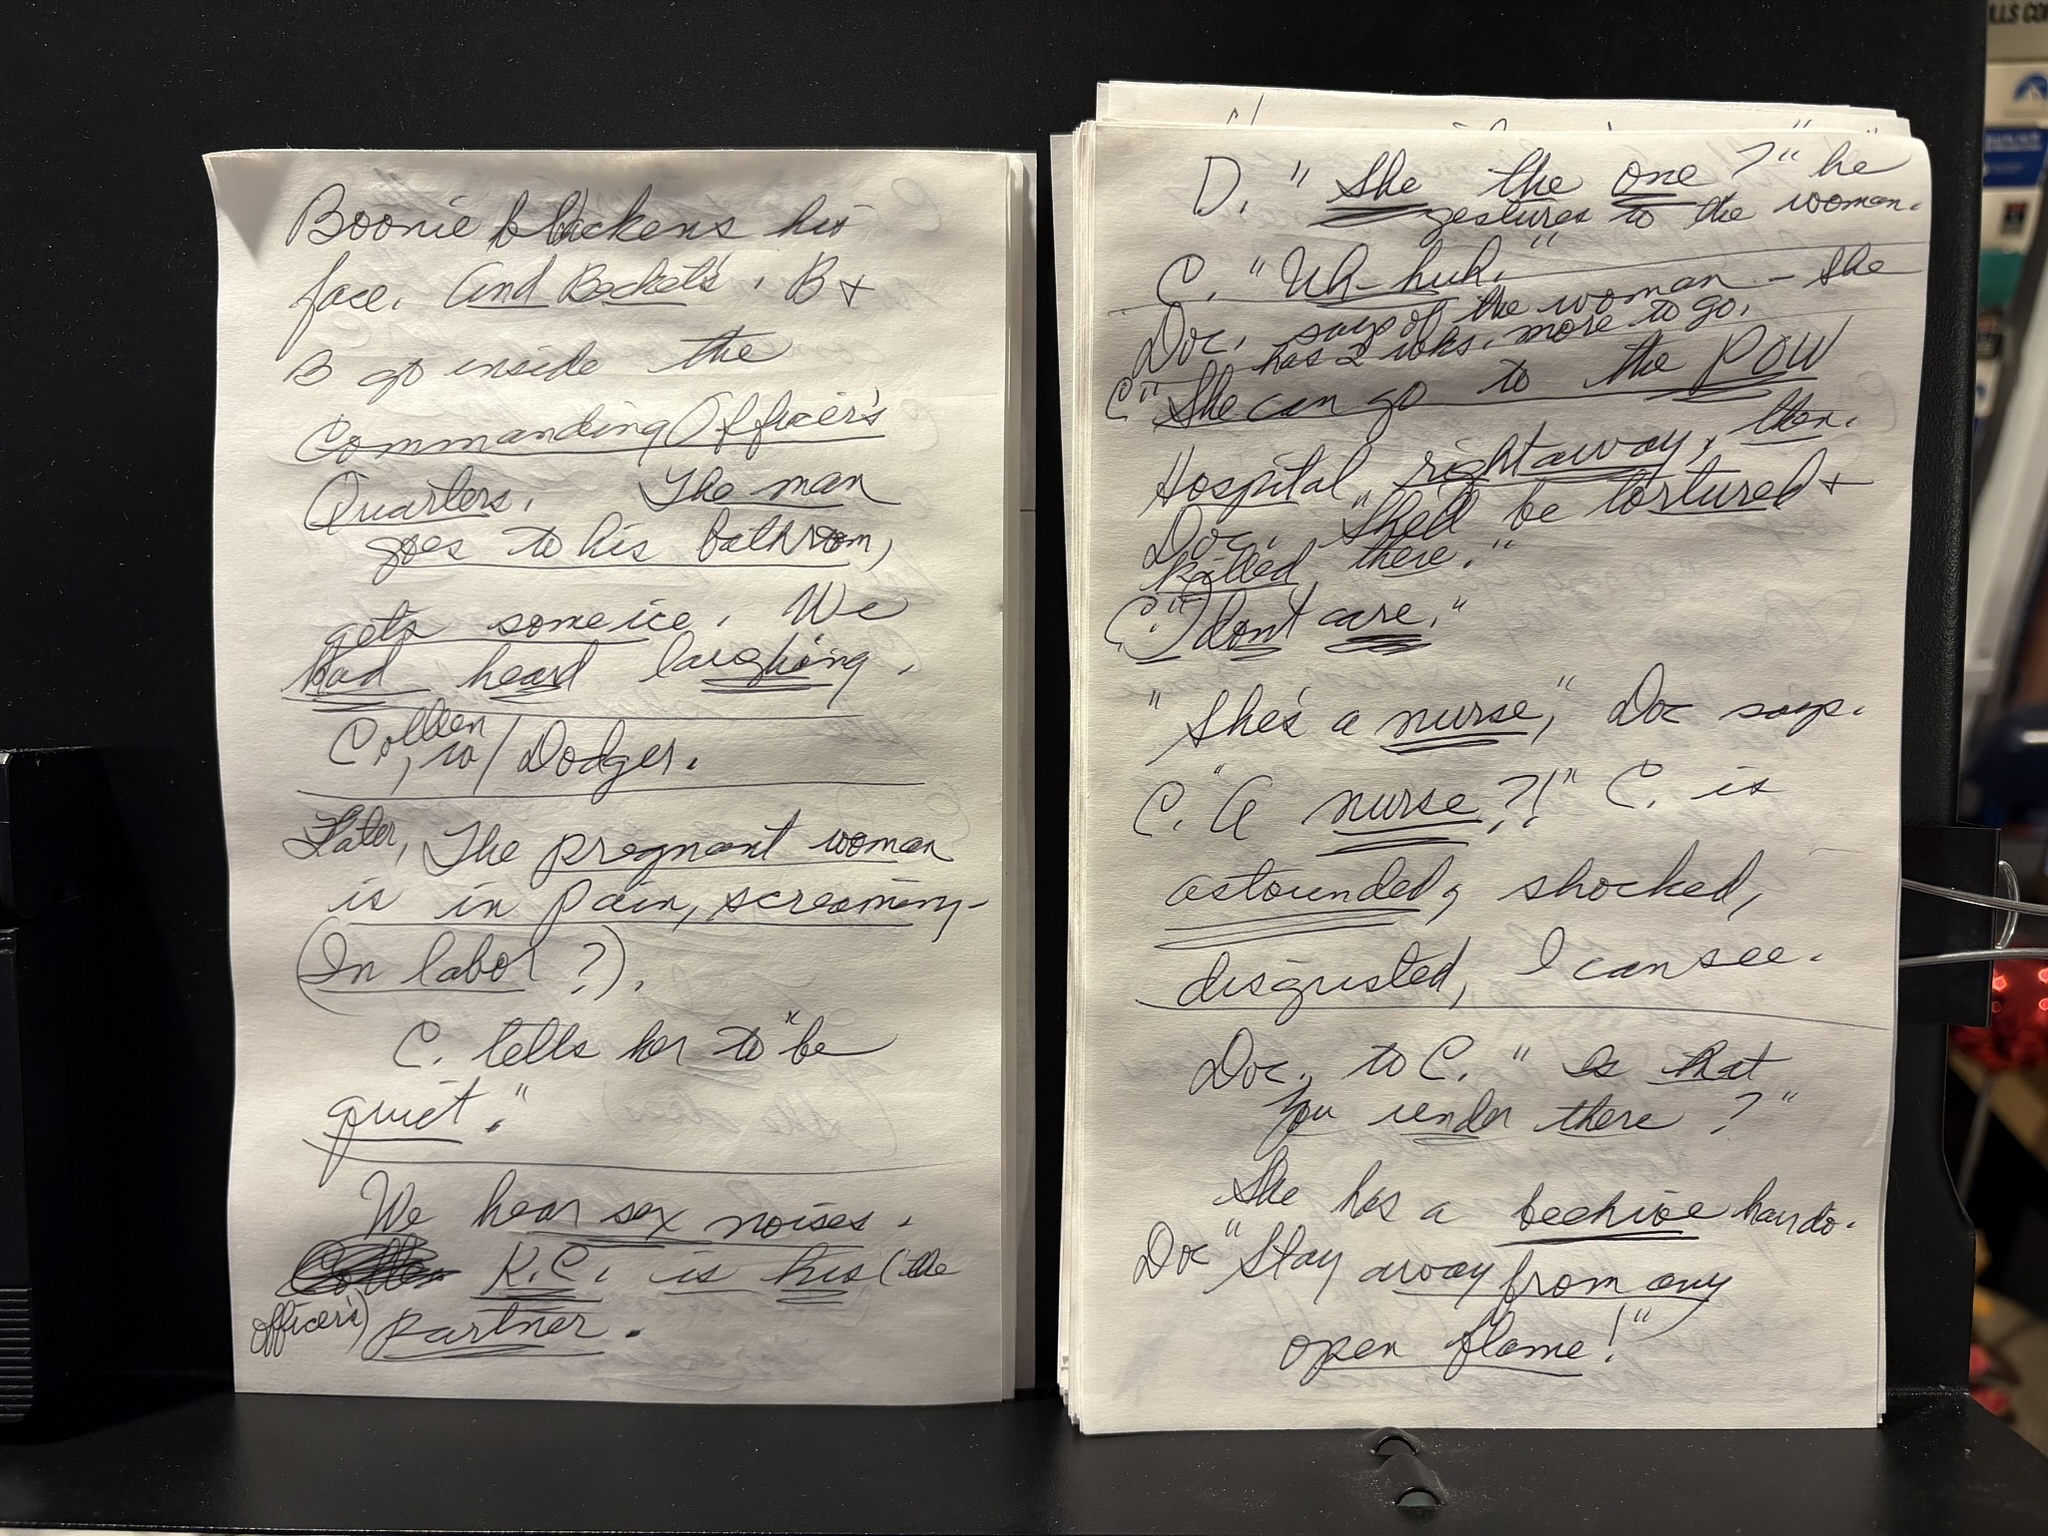 Boonie blackens his
face. And Becket's. B +
B go inside the
Commanding Officer's
Quarters. The man
goes to his bathroom,
gets some ice. We
had heard laughing.
Colleen, w/ Dodger.
Later, The pregnant woman
is in pain, screaming-
(In labor ?).
C. tells her to "be
quiet."
We hear sex noises.
K.C. is his (the
officer's) partner.
D. "She the one?" he
gestures to the woman.
C. "Uh-huh."
Doc. says of the woman - she
has 2 wks. more to go.
C "She can go to the POW
Hospital right away, then.
Doc. "She'll be tortured +
killed there."
C. "I don't care."
"She's a nurse," Doc says.
C. "A nurse?!" C. is
astounded, shocked,
disgusted, I can see.
Doc. to C. "Is that
you under there?"
She has a beehive hairdo.
Doc "Stay away from any
open flame!"
ILLS CO